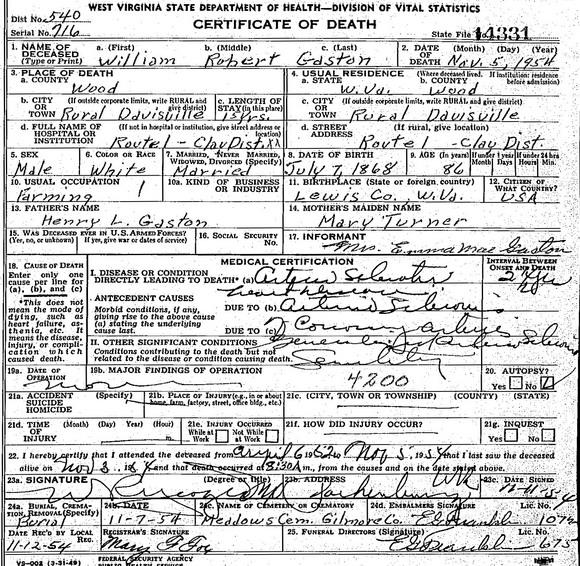 WEST VIRGINIA STATE DEPARTMENT OF HEALTH—DIVISION OF VITAL STATISTICS
Dist No. 540 CERTIFICATE OF DEATH
Serial No. 716 State File No. 14331
1. NAME OF DECEASED (Type or Print) a. (First) b. (Middle) c. (Last) 2. DATE OF DEATH (Month) (Day) (Year)
William Robert Gaston Nov. 5, 1954
3. PLACE OF DEATH 4. USUAL RESIDENCE (Where deceased lived. If institution: residence before admission)
a. COUNTY Wood a. STATE W.Va. b. COUNTY Wood
b. CITY OR TOWN (If outside corporate limits, write RURAL and give district) c. LENGTH OF STAY (in this place) c. CITY OR TOWN (If outside corporate limits, write RURAL and give district)
Rural Davisville 15 yrs. Rural Davisville
d. FULL NAME OF HOSPITAL OR INSTITUTION (If not in hospital or institution, give street address or location) d. STREET ADDRESS (If rural, give location)
Route 1 - Clay Dist. Route 1 - Clay Dist.
5. SEX 6. COLOR OR RACE 7. MARRIED, NEVER MARRIED, WIDOWED, DIVORCED (Specify) 8. DATE OF BIRTH 9. AGE (In years) If under 1 year If under 24 hrs
Male White Married July 7, 1868 86
10. USUAL OCCUPATION 10a. KIND OF BUSINESS OR INDUSTRY 11. BIRTHPLACE (State or foreign country) 12. CITIZEN OF WHAT COUNTRY?
Farming Lewis Co. W.Va. USA
13. FATHER'S NAME 14. MOTHER'S MAIDEN NAME
Henry L. Gaston Mary Turner
15. WAS DECEASED EVER IN U.S. ARMED FORCES? (Yes, no, or unknown) (If yes, give war or dates of service) 16. SOCIAL SECURITY NO. 17. INFORMANT
Mrs. Emma Mae Gaston
MEDICAL CERTIFICATION INTERVAL BETWEEN ONSET AND DEATH
18. CAUSE OF DEATH
Enter only one cause per line for (a), (b), and (c)
*This does not mean the mode of dying, such as heart failure, asthenia, etc. It means the disease, injury, or complication which caused death.
I. DISEASE OR CONDITION DIRECTLY LEADING TO DEATH* (a)
ANTECEDENT CAUSES
Morbid conditions, if any, giving rise to the above cause (a) stating the underlying cause last.
DUE TO (b)
DUE TO (c) Coronary
II. OTHER SIGNIFICANT CONDITIONS
Conditions contributing to the death but not related to the disease or condition causing death.
Senility
19a. DATE OF OPERATION 19b. MAJOR FINDINGS OF OPERATION 20. AUTOPSY?
4200 Yes No
21a. ACCIDENT SUICIDE HOMICIDE (Specify) 21b. PLACE OF INJURY (e.g., in or about home, farm, factory, street, office bldg., etc.) 21c. (CITY, TOWN OR TOWNSHIP) (COUNTY) (STATE)
21d. TIME OF INJURY (Month) (Day) (Year) (Hour) m. 21e. INJURY OCCURRED While at Work Not While at Work 21f. HOW DID INJURY OCCUR? 21g. INQUEST Yes No
22. I hereby certify that I attended the deceased from April 6 1952 to Nov 5, 1954 that I last saw the deceased
alive on Nov 3, 1954 and that death occurred at 8:30A m., from the causes and on the date stated above.
23a. SIGNATURE (Degree or Title) 23b. ADDRESS 23c. DATE SIGNED
24a. BURIAL, CREMATION, REMOVAL (Specify) 24b. DATE 24c. NAME OF CEMETERY OR CREMATORY 24d. EMBALMERS SIGNATURE Lic. No.
Burial 11-7-54 Meadows Cem. Gilmore Co.
DATE REC'D BY LOCAL REG. REGISTRAR'S SIGNATURE 25. FUNERAL DIRECTORS (Signature) Lic. No.
11-12-54 675
VS-002 (3-31-49) FEDERAL SECURITY AGENCY
PUBLIC HEALTH SERVICE